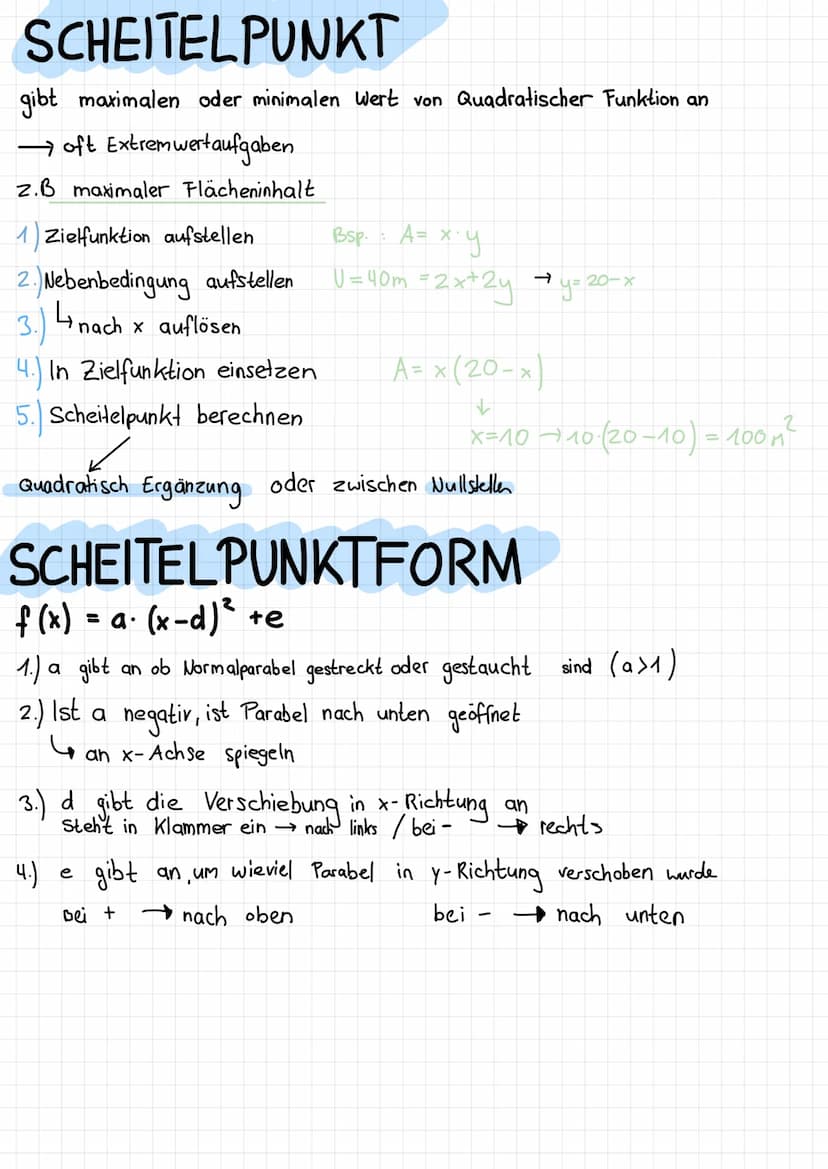 SCHEITELPUNKT
gibt maximalen oder minimalen Wert von Quadratischer Funktion an
→ oft Extremwertaufgaben
z.B maximaler Flächeninhalt
1) Zielfunktion aufstellen Bsp. : A= x·y
2.) Nebenbedingung aufstellen U=40m =2x+2y → y=20-x
3.) ↳ nach x auflösen
4.) In Zielfunktion einsetzen A= x(20-x)
↓
5.) Scheitelpunkt berechnen x=10 → 10·(20-10) = 100m²
Quadratisch Ergänzung oder zwischen Nullstellen
SCHEITELPUNKTFORM
f(x) = a· (x-d)² +e
1.) a gibt an ob Normalparabel gestreckt oder gestaucht sind (a>1)
2.) Ist a negativ, ist Parabel nach unten geöffnet
↳ an x-Achse spiegeln
3.) d gibt die Verschiebung in x-Richtung an
steht in Klammer ein → nach links / bei - → rechts
4.) e gibt an, um wieviel Parabel in y-Richtung verschoben wurde
bei + → nach oben bei - → nach unten